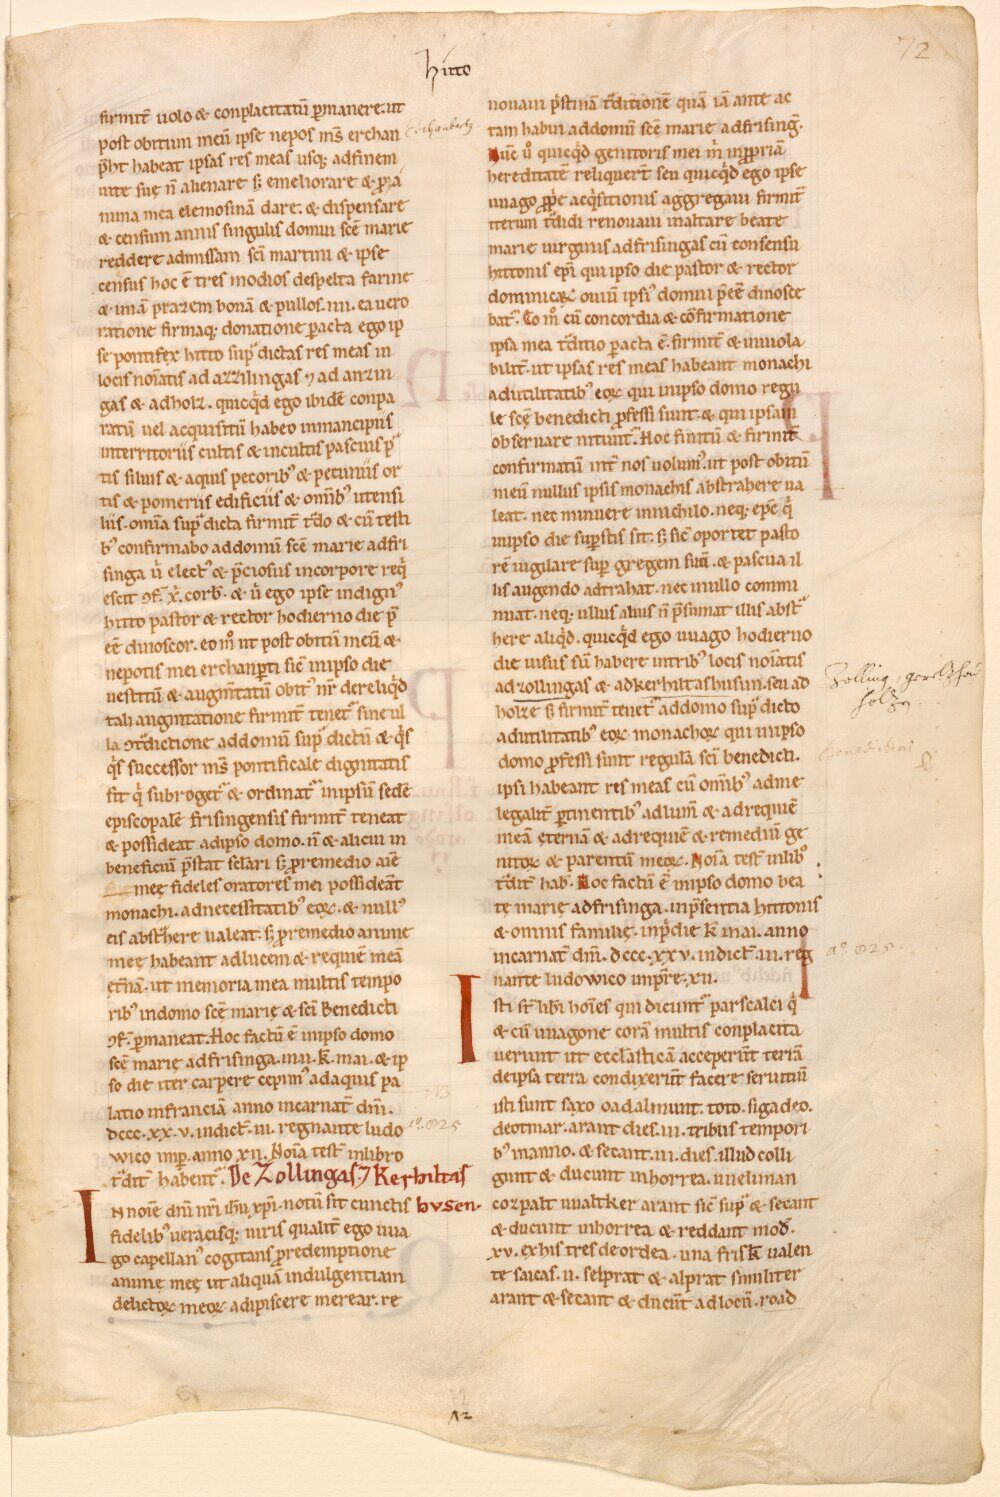 72
hitto
firmit̄ uolo & conplacitatū ꝑmanere. ut
post obitum meū ipse nepos mꝰs erchan
p̄ht habeat ipsas res meas usq; adfinem
uite suę n̄ alienare s; emeliorare & ꝓ a
nima mea elemosinā dare. & dispensare
& censum annis singulis domui scē marie
reddere admissam scī martini & ipse
census hoc ē tres modios despelta farine
& unā frazem bonā & pullos .iiii. ea uero
ratione firmaq; donatione ꝑacta ego ip
se pontifex hitto sup̄dictas res meas in
locis noīatis ad azzilingas ⁊ ad anzin
gas & adholz. quicq̇d ego ibidē conpa
ratū uel acquisitū habeo inmancipiis
interritoriis cultis & incultis pascuis p̄
tis siluis & aquis pecoribꝰ & pecuniis or
tis & pomeriis edificiis & om̄ibꝰ utensi
liis. om̄ia sup̄dicta firmit̄ t̄do & cū testi
bꝰ confirmabo addomū scē marie adfri
singa ū electꝰ & p̄ciosus incorpore req̇
escit ꝯf̄. x̄. corb̄. & ū ego ipse indignꝰ
hitto pastor & rector hodierno die p̄
eē dinoscor. eo m̊ ut post obitū meū &
nepotis mei erchanꝑti sic̄ inipso die
uestitū & augm̄tatū obitꝰ nr̄ dereliq̇d
tali augmtatione firmit̄ tenet̄ sine ul
la ꝯt̄dictione addomū sup̄ dictū & q̇s
q̇s successor mꝰs pontificale dignitatis
sit q̇ subroget̄ & ordinat̄ inipsū sedē
episcopalē frisingensis firmit̄ teneat
& possideat adipso domo. n̄ & alicui in
beneficiū p̄stat selari s; ꝓremedio aīe
meę fideles oratores mei possideāt
monachi. adnecessitatibꝰ eoꝝ. & nullꝰ
eis abst̄here ualeat. s; ꝓremedio anime
meę habeant adlucem & requiē meā
et̄nā. ut memoria mea multis tempo
ribꝰ indomo scē marię & scī Benedicti
ꝯf̄. ꝑmaneat. Hoc factū ē inipso domo
scē marię adfrisinga. iiii. k̄. mai. & ip
so die iter carpere cepimꝰ adaquis pa
latio infranciā anno incarnat̄ dn̄i.
dccc. xx. v. indict̄. iii. regnante ludo
wico imꝑ. anno xii. Noīa test̄ inlibro
t̄dit̄ habent̄. De Zollingas. ⁊ Kerhiltas
husen.
In noīe dn̄i nr̄i ih̄u xp̄i. notū sit cunctis
fidelibꝰ ueracisq; uiris qualit̄ ego uua
go capellanꝰ cogitans ꝓredemptione
animę meę ut aliquā indulgentiam
delictoꝝ meoꝝ adipiscere merear. re
erchanbertꝰ
aº. 825
nouaui p̄stinā t̄ditionē quā iā ante ac
tam habui addomū scē marie adfrisinḡ.
Tūc ů quicq̇d genitoris mei m̄ inꝓpriā
hereditatē reliquert̄ seu quicq̇d ego ipse
uuago ꝓp̄e acq̇sitionis aggregaui firmit̄
iterum t̄didi renouaui inaltare beate
marie uirginis adfrisingas cū consensu
hittonis epī qui ipso die pastor & rector
dominicaꝝ ouiū ipsiꝰ domui p̄eē dinosce
bat̄. Eo m̊ cū concordia & cōfirmatione
ipsa mea t̄ditio ꝑacta ē. firmit̄ & inuiola
bilit̄. ut ipsas res meas habeant monachi
adutilitatibꝰ eoꝝ qui inipso domo regu
le scē benedicti ꝓfessi sunt. & qui ipsam
obseruare nitunt̄. Hoc finitū & firmit̄
confirmatū int̄ nos uolumꝰ. ut post obitū
meū nullus ipsis monachis abstrahere ua
leat. nec minuere innichilo. neq; ep̄c q̇
inipso die suꝑstis sit. s; sic̄ oportet pasto
rē uigilare suꝑ gregem suū. & pascua il
lis augendo adtrahat. nec inullo commi
nuat. neq; ullus alius n̄ p̄sumat illis abst̄
here aliq̇d. quicq̇d ego uuago hodierno
die uisus sū habere intribꝰ locis noīatis
adzollingas & adkerhiltashusun. seu ad
holze s; firmit̄ tenet̄ addomo sup̄ dicto
adutilitatibꝰ eoꝝ monachoꝝ qui inipso
domo ꝓfessi sunt regulā scī benedicti.
ipsi habeant res meas cū om̄ibꝰ adme
legalit̄ ꝑtinentibꝰ adlumē & adrequiē
meā ęternā & adrequiē & remediū ge
nitoꝝ & parentū meoꝝ. Noīa test̄ inlibꝰ
t̄dit̄ hab̄. Hoc factū ē inipso domo bea
tę marię adfrisinga. inp̄sentia hittonis
& omnis familię. inp̄die k̄ mai. anno
incarnat̄ dn̄i. dccc. xx v. indict̄. iii. reg
nante ludowico imp̄re. xii.
Isti st̄ libī hoīes qui dicunt̄ parscalci q̇
& cū uuagone corā multis conplacita
uerunt ut ecclāsticā acceperūt terrā
deipsa terra condixerūt facere seruitiū
isti sunt saxo oadalmunt. toto. sigadeo.
deotmar. arant dies .iii. tribus tempori
bꝰ inanno. & secant .iii. dies. illud colli
gunt & ducunt inhorrea. uueliman
cozpalt uualtker arant sic̄ sup̄ & secant
& ducunt inhorrea & reddant mod̄.
xv. exhis tres deordea. una frisk̄ ualen
te saicas .ii. selprat & alprat similiter
arant & secant & ducūt adlocū. road
Zolling, gereltzhau
holtzn
Benedictini
aº. 825.
12